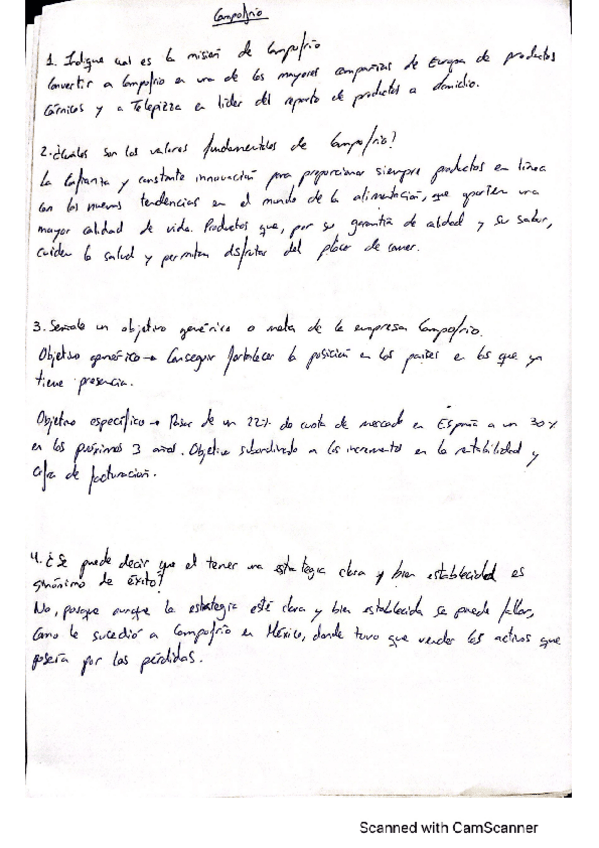 Campofrio
1. Indique cual es la misión de Campofrio
Convertir a Campofrio en una de las mayores compañias de Europa de productos
Cárnicos y a Telepizza en lider del reparto de productos a domicilio.
2. ¿Cuáles son los valores fundamentales de Campofrio?
La Confianza y constante innovación para proporcionar siempre productos en línea
con las nuevas tendencias en el mundo de la alimentación, que aporten una
mayor calidad de vida. Productos que, por su garantía de calidad y su sabor,
cuiden la salud y permitan disfrutar del placer de comer.
3. Señale un objetivo genérico o meta de la empresa Campofrio.
Objetivo genérico → Conseguir fortalecer la posición en los países en los que ya
tiene presencia.
Objetivo específico → Pasar de un 22% de cuota de mercado en España a un 30%
en los próximos 3 años. Objetivo subordinado a los incrementos en la rentabilidad y
cifra de facturación.
4. ¿Se puede decir que el tener una estrategia clara y bien establecida es
sinónimo de éxito?
No, porque aunque la estrategia esté clara y bien establecida se puede fallar,
Como le sucedió a Campofrio en México, donde tuvo que vender los activos que
poseía por las pérdidas.
Scanned with CamScanner